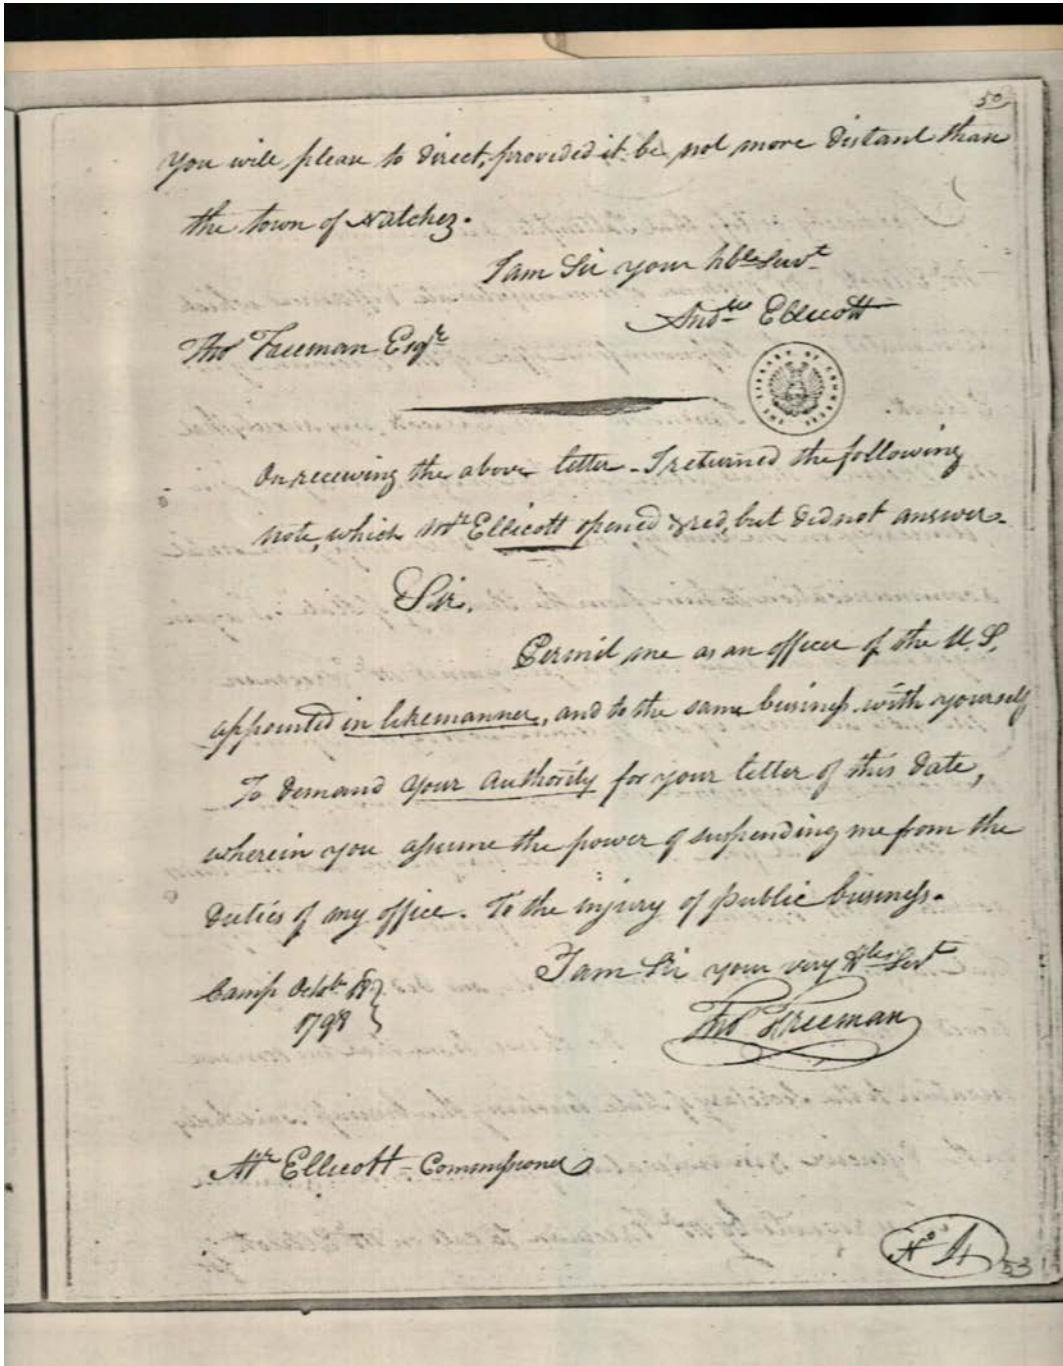 50
you will please to direct, provided it be not more distant than
the town of Natchez.
I am Sir your hble Servt
Andw Ellicott
Tho Freeman Esqr
THE LIBRARY OF CONGRESS
On receiving the above letter - I returned the following
note, which Mr Ellicott opened & red, but did not answer.
Sir.
Permit me as an officer of the U. S.
appointed in like manner, and to the same business with yourself
To demand your authority for your letter of this date,
wherein you assume the power of suspending me from the
Duties of my office. To the injury of public business.
I am Sir your very Hble Servt
Camp Octobr
1798
Tho Freeman
Mr Ellicott - Commissioner
No 4
53